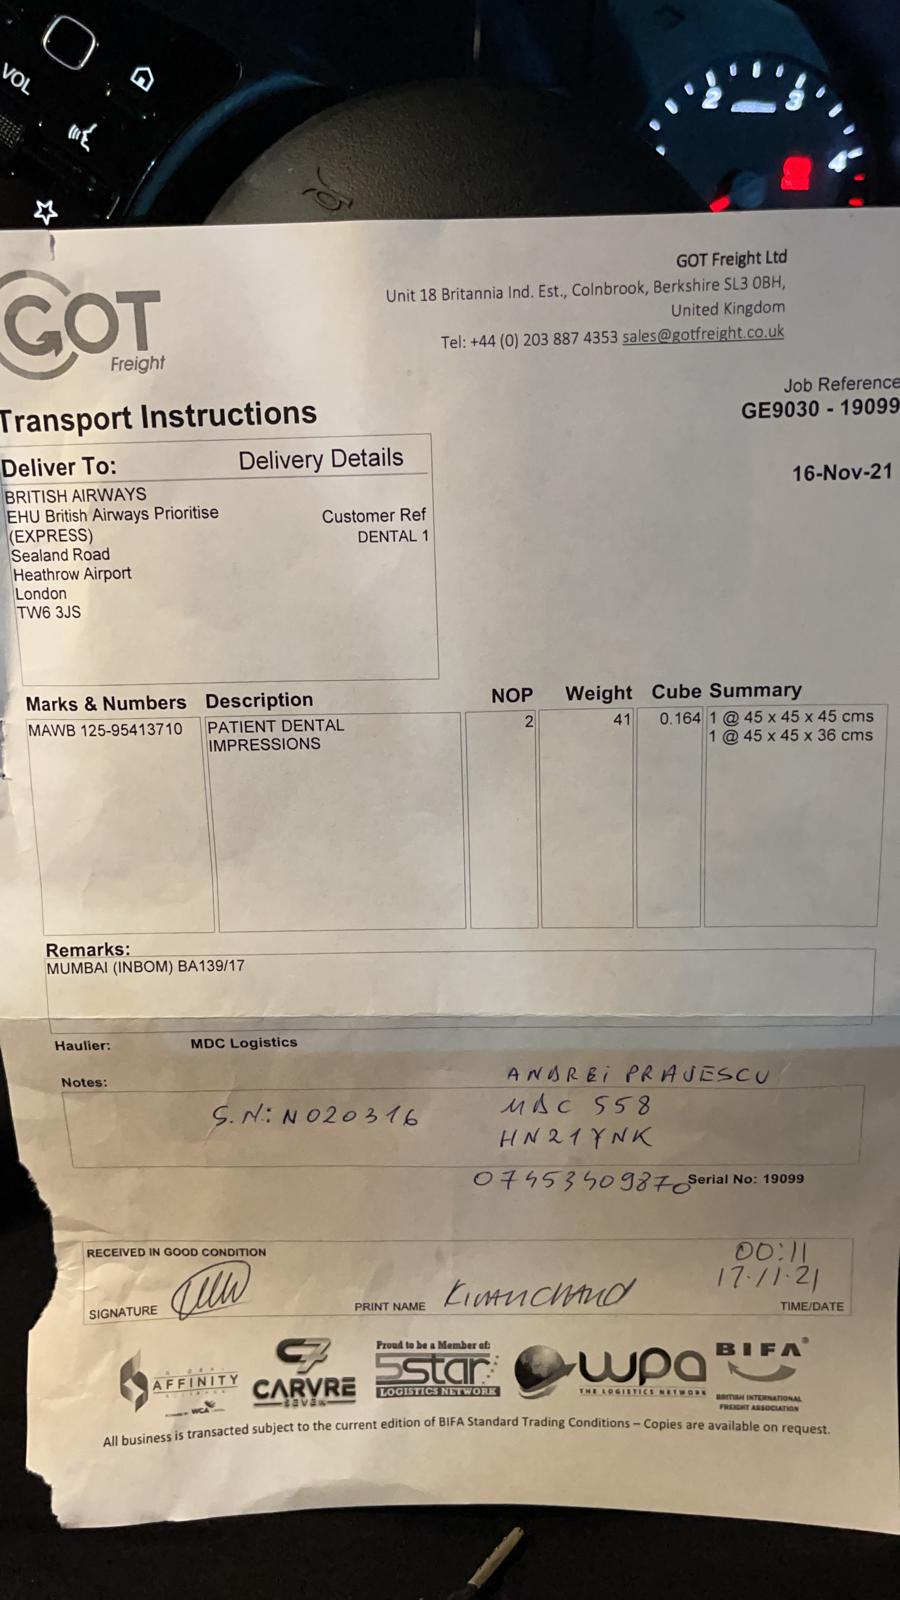 VOL
2 3 4
GOT
Freight
GOT Freight Ltd
Unit 18 Britannia Ind. Est., Colnbrook, Berkshire SL3 0BH,
United Kingdom
Tel: +44 (0) 203 887 4353 sales@gotfreight.co.uk
Job Reference
GE9030 - 19099
Transport Instructions
16-Nov-21
Deliver To: Delivery Details
BRITISH AIRWAYS
EHU British Airways Prioritise Customer Ref
(EXPRESS) DENTAL 1
Sealand Road
Heathrow Airport
London
TW6 3JS
Marks & Numbers Description NOP Weight Cube Summary
MAWB 125-95413710 PATIENT DENTAL 2 41 0.164 1 @ 45 x 45 x 45 cms
IMPRESSIONS 1 @ 45 x 45 x 36 cms
Remarks:
MUMBAI (INBOM) BA139/17
Haulier: MDC Logistics
Notes:
ANDREI PRAJESCU
S.N: N020316 MDC 558
HN21YNK
07453409870 Serial No: 19099
RECEIVED IN GOOD CONDITION 00:11
17.11.21
SIGNATURE PRINT NAME TIME/DATE
AFFINITY
WCA
C7
CARVRE
SEVEN
Proud to be a Member of:
5star
LOGISTICS NETWORK
wpa
THE LOGISTICS NETWORK
BIFA
BRITISH INTERNATIONAL
FREIGHT ASSOCIATION
All business is transacted subject to the current edition of BIFA Standard Trading Conditions – Copies are available on request.